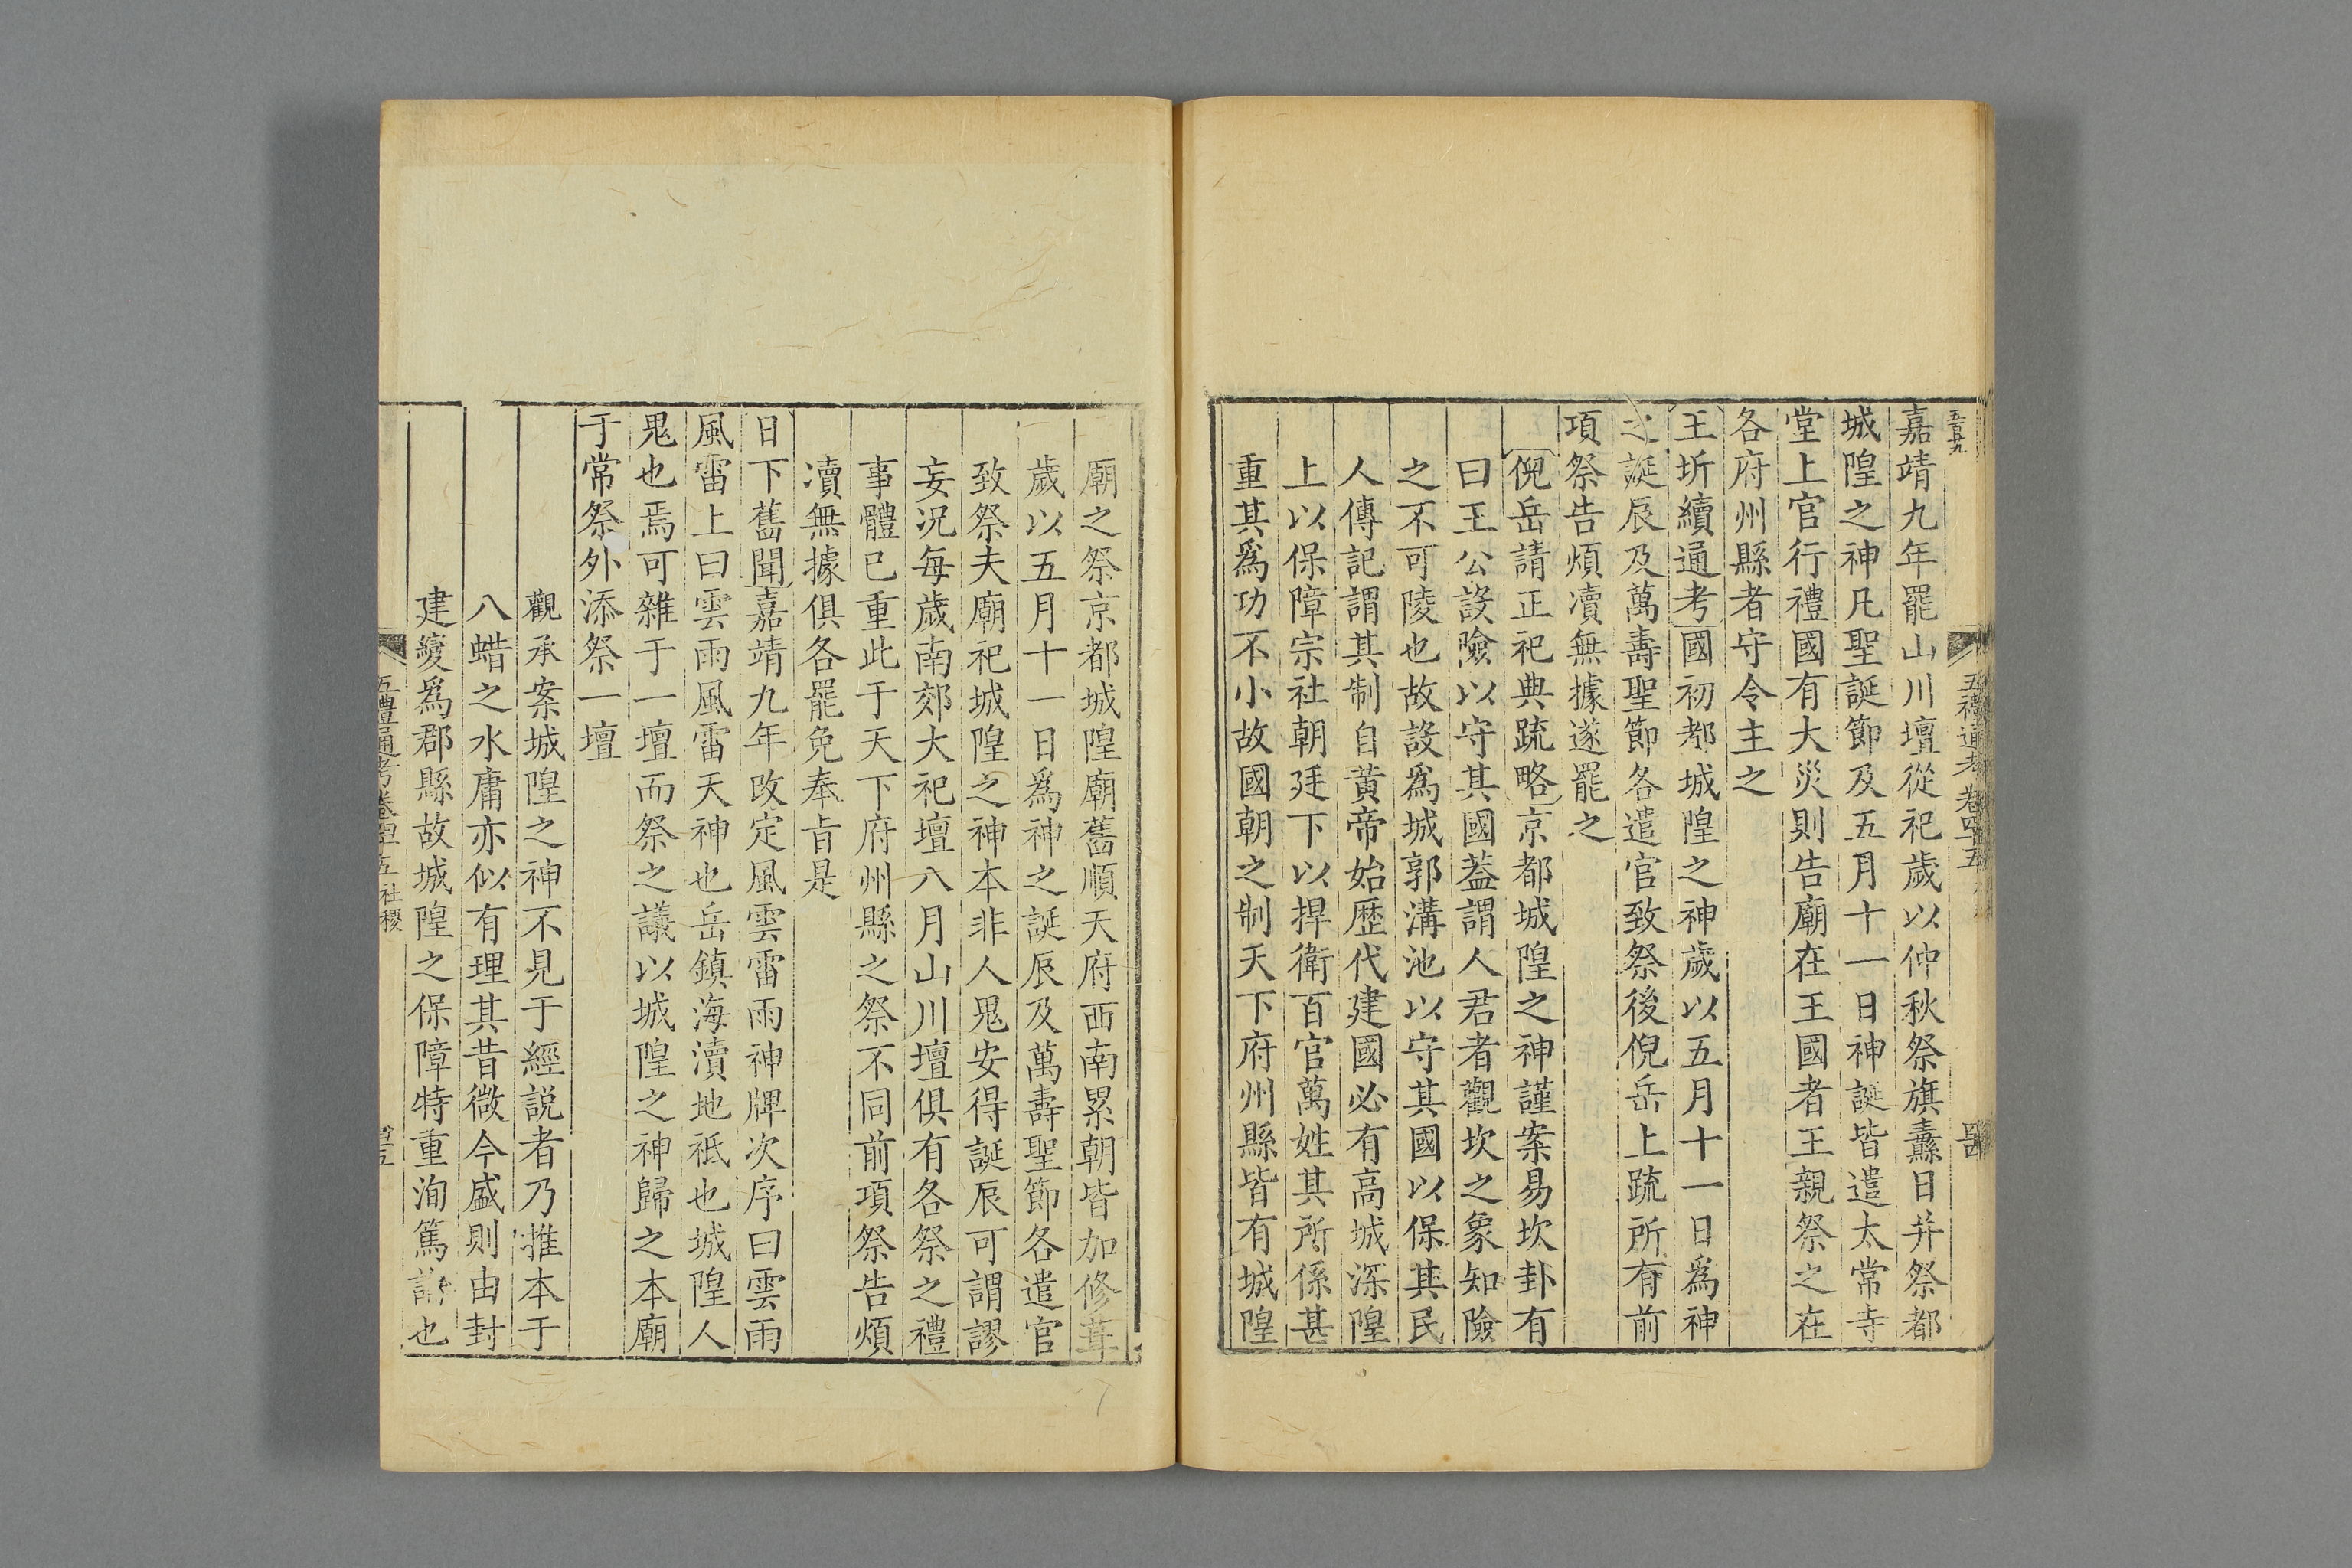 五百九
五禮通考卷四十五
嘉靖九年罷山川壇從祀歲以仲秋祭旗纛日并祭都
城隍之神凡聖誕節及五月十一日神誕皆遣太常寺
堂上官行禮國有大災則告廟在王國者王親祭之在
各府州縣者守令主之
王圻續通考國初都城隍之神歲以五月十一日為神
之誕辰及萬壽聖節各遣官致祭後倪岳上疏所有前
項祭告煩瀆無據遂罷之
倪岳請正祀典疏略京都城隍之神謹案易坎卦有
曰王公設險以守其國蓋謂人君者觀坎之象知險
之不可陵也故設爲城郭溝池以守其國以保其民
人傳記謂其制自黃帝始歷代建國必有高城深隍
上以保障宗社朝廷下以捍衛百官萬姓其所係甚
重其爲功不小故國朝之制天下府州縣皆有城隍
廟之祭京都城隍廟舊順天府西南累朝皆加修葺
歲以五月十一日爲神之誕辰及萬壽聖節各遣官
致祭夫廟祀城隍之神本非人鬼安得誕辰可謂謬
妄況每歲南郊大祀壇八月山川壇俱有各祭之禮
事體已重此于天下府州縣之祭不同前項祭告煩
瀆無據俱各罷免奉旨是
日下舊聞嘉靖九年改定風雲雷雨神牌次序曰雲雨
風雷上曰雲雨風雷天神也岳鎮海瀆地祇也城隍人
鬼也焉可雜于一壇而祭之議以城隍之神歸之本廟
于常祭外添祭一壇
觀承案城隍之神不見于經説者乃推本于
八蜡之水庸亦似有理其昔微今盛則由封
建變爲郡縣故城隍之保障特重洵篤論也
五禮通考卷四十五社稷